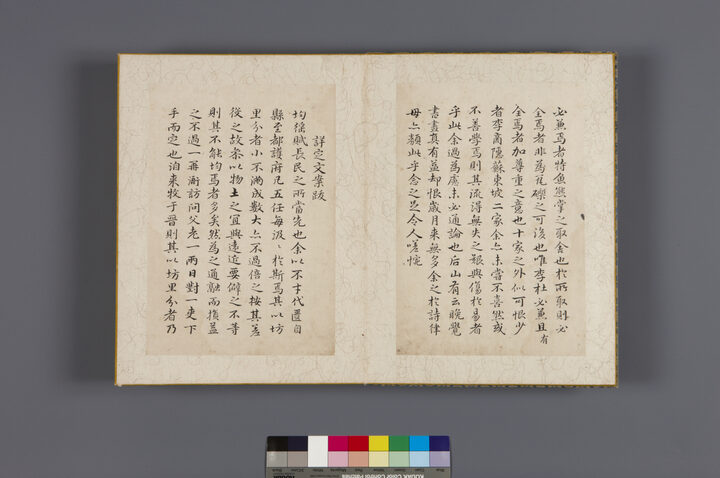 必兼焉者特魚熊掌之取舍也於所取則必
全焉者非為瓦礫之可後也唯李杜必兼且有
全焉者加尊重之意也十家之外似可恨少
者李商隱蘇東坡二家余亦未嘗不喜然或
不善學焉則其流得無失之艱與傷於易者
乎此余過為慮未必通論也后山有云晚覺
書畫真有益却恨歲月來無多余之於詩律
毋亦類此乎念之足令人嗟惋
詳定文案跋
均徭賦長民之所當先也余以不才代匱自
縣至都護府凡五任每汲〻於斯焉其以坊
里分者小不滿成數大亦不過倍之按其差
役之故案以物土之宜與遠近要僻之不等
則其不能均焉者多矣然為之通融而損益
之不過一再衙訪問父老一兩日對一吏下
手而定也洎來牧于晉則其以坊里分者乃